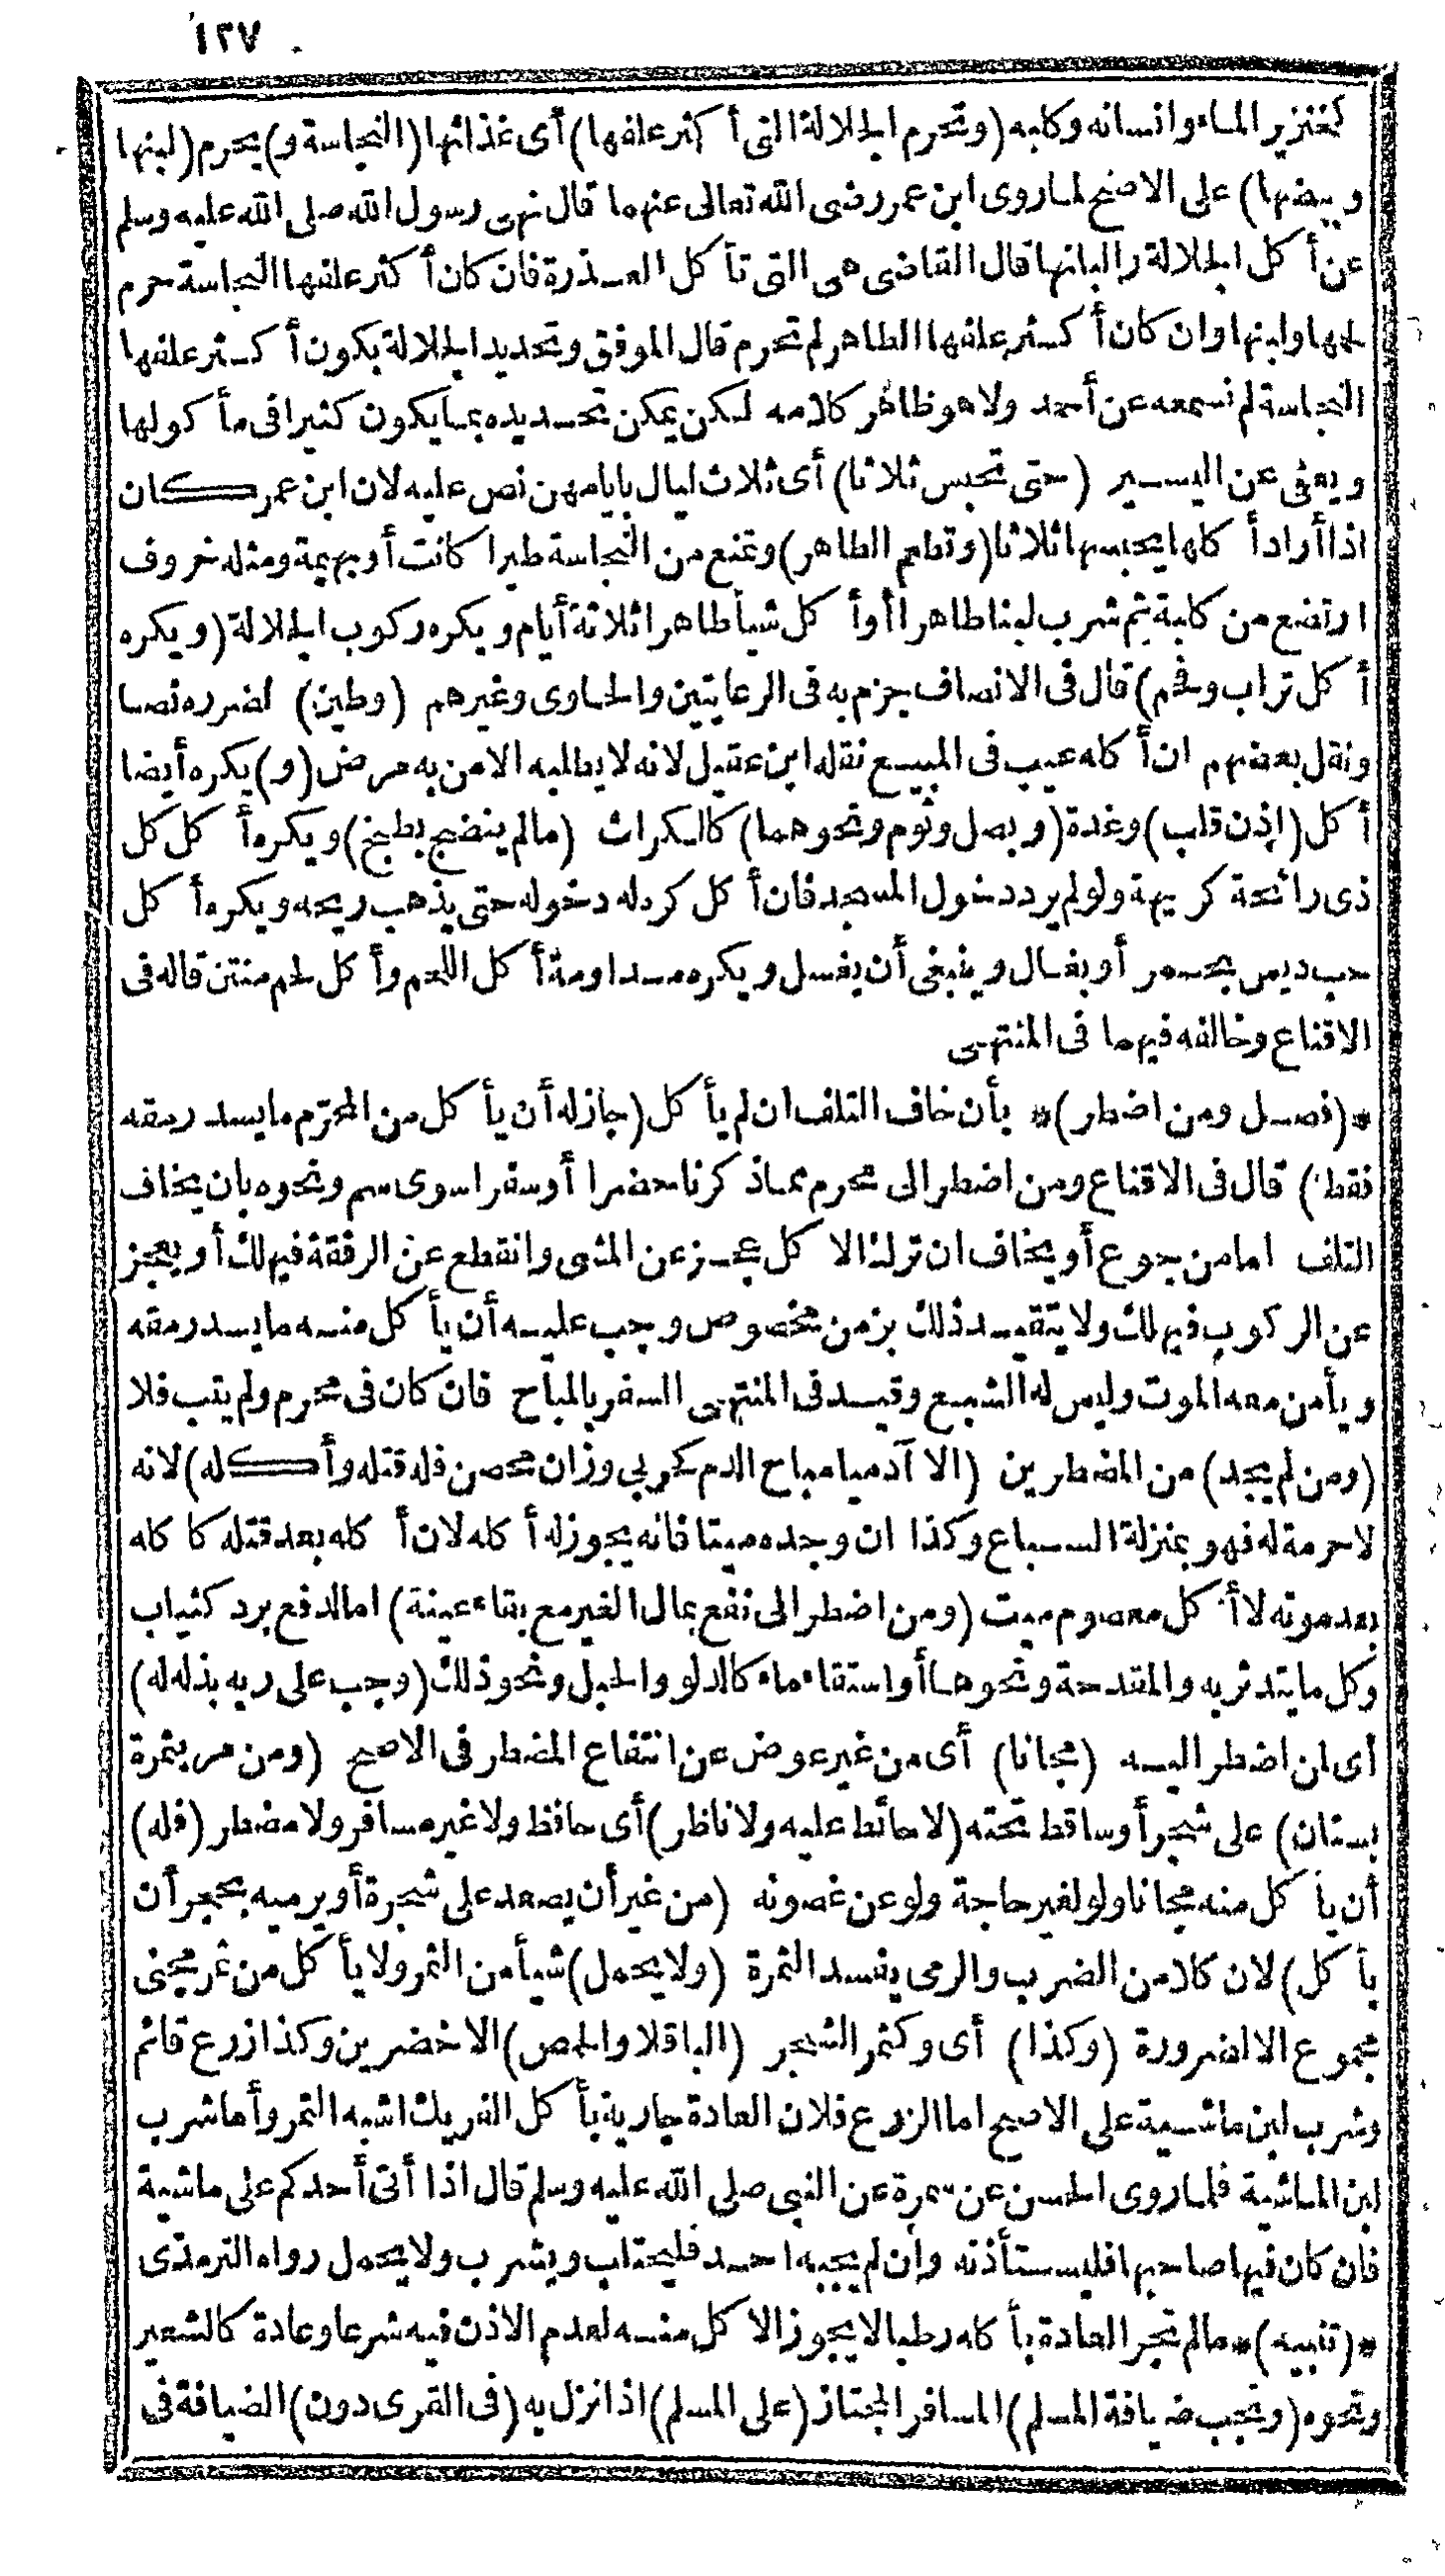 ١٣٧
كخنزير الماء وانسانه وكلبه (وتحرم الجلالة التى أكثر علفها) أى غذائها (النجاسة و) يحرم (لبنها
وبيضها) على الاصح لما روى ابن عمر رضى الله تعالى عنهما قال نهى رسول الله صلى الله عليه وسلم
عن أكل الجلالة وألبانها قال القاضى هى التى تأكل العذرة فان كان أكثر علفها النجاسة حرم
لحمها ولبنها وان كان أكثر علفها الطاهر لم تحرم قال الموفق وتحديد الجلالة بكون أكثر علفها
النجاسة لم نسمعه عن أحمد ولا هو ظاهر كلامه لكن يمكن تحديده بما يكون كثيرا فى مأكولها
ويعفى عن اليسير (حتى تحبس ثلاثا) أى ثلاث ليال بايامهن نص عليه لان ابن عمر كان
اذا أراد أكلها يحبسها ثلاثا (وتطعم الطاهر) وتمنع من النجاسة طيرا كانت أو بهيمة ومثله خروف
ارتضع من كلبة ثم شرب لبنا طاهرا أو أكل شيأ طاهرا ثلاثة أيام ويكره ركوب الجلالة (ويكره
أكل تراب وفحم) قال فى الانصاف جزم به فى الرعايتين والحاوى وغيرهم (وطين) لضرره نصا
ونقل بعضهم ان أكله عيب فى المبيع نقله ابن عقيل لانه لا يطلبه الا من به مرض (و) يكره أيضا
أكل (اذن قلب) وغدة (وبصل وثوم ونحوهما) كالكراث (ما لم ينضج بطبخ) ويكره أكل كل
ذى رائحة كريهة ولو لم يرد دخول المسجد فان أكل كره له دخوله حتى يذهب ريحه ويكره أكل
حب ديس بحمر أو بغال وينبغى أن يغسل ويكره مداومة أكل اللحم وأكل لحم منتن قاله فى
الاقناع وخالفه فيهما فى المنتهى
* (فصل ومن اضطر) * بأن خاف التلف ان لم يأكل (جاز له أن يأكل من المحرّم ما يسد رمقه
فقط) قال فى الاقناع ومن اضطر الى محرم مما ذكرنا حضرا أو سفرا سوى سم ونحوه بان يخاف
التلف اما من جوع أو يخاف ان ترك الاكل عجز عن المشى وانقطع عن الرفقة فيهلك أو يعجز
عن الركوب فيهلك ولا يتقيد ذلك بزمن مخصوص وجب عليه أن يأكل منه ما يسد رمقه
ويأمن معه الموت وليس له الشبع وقيد فى المنتهى السفر بالمباح فان كان فى محرم ولم يتب فلا
(ومن لم يجد) من المضطرين (الا آدميا مباح الدم كحربى وزان محصن فله قتله وأكله) لانه
لا حرمة له فهو بمنزلة السباع وكذا ان وجده ميتا فانه يجوز له أكله لان أكله بعد قتله كاكله
بعد موته لا أكل معصوم ميت (ومن اضطر الى نفع بمال الغير مع بقاء عينة) اما لدفع برد كثياب
وكل ما يتدثر به والمقدحة ونحوها أو استقاء ماء كالدلو والحبل ونحو ذلك (وجب على ربه بذله له)
أى لمن اضطر اليه (مجانا) أى من غير عوض عن انتفاع المضطر فى الاصح (ومن مر بثمرة
بستان) على شجر أو ساقط تحته (لا حائط عليه ولا ناظر) أى حافظ ولا غير مسافر ولا مضطر (فله)
أن يأكل منه مجانا ولو لغير حاجة ولو عن غصونه (من غير أن يصعد على شجرة أو يرميه بحجر أن
يأكل) لان كلا من الضرب والرمى يفسد الثمرة (ولا يحمل) شيأ من الثمر ولا يأكل من ثمر مجنى
مجموع الا لضرورة (وكذا) أى وكثمر الشجر (الباقلا والحمص) الاخضرين وكذا زرع قائم
وشرب لبن ماشية على الاصح اما الزرع فلان العادة جارية بأكل الفريك اشبه الثمر وأما شرب
لبن الماشية فلما روى الحسن عن سمرة عن النبى صلى الله عليه وسلم قال اذا أتى أحدكم على ماشية
فان كان فيها صاحبها فليستأذنه وان لم يجبه احد فليحتلب ويشرب ولا يحمل رواه الترمذى
* (تنبيه) * ما لم تجر العادة بأكله رطبا لا يجوز الاكل منه لعدم الاذن فيه شرعا وعادة كالشعير
ونحوه (وتجب ضيافة المسلم) المسافر المجتاز (على المسلم) اذا نزل به (فى القرى دون) الضيافة فى